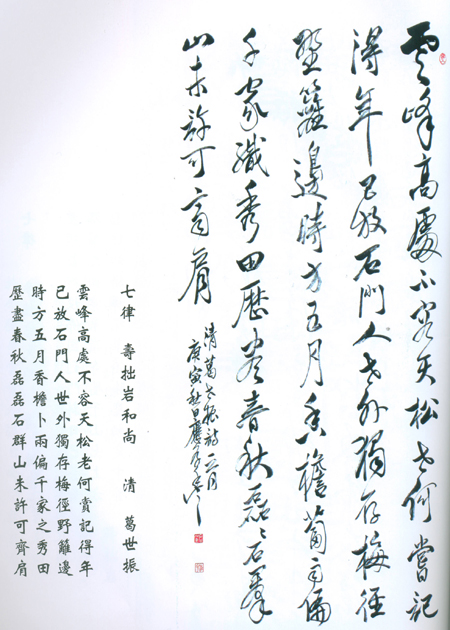 雲峰高處不容天松老何嘗記
得年已放石門人世外獨存梅徑
野籬邊時方五月香檐蔔雨偏
千家秀田歷盡春秋磊々石羣
山未許可齊肩
清葛世振詩
庚寅秋日
七律 壽拙岩和尚 清 葛世振
雲峰高處不容天松老何賞記得年
已放石門人世外獨存梅徑野籬邊
時方五月香檐卜兩偏千家之秀田
歷盡春秋磊磊石群山未許可齊肩